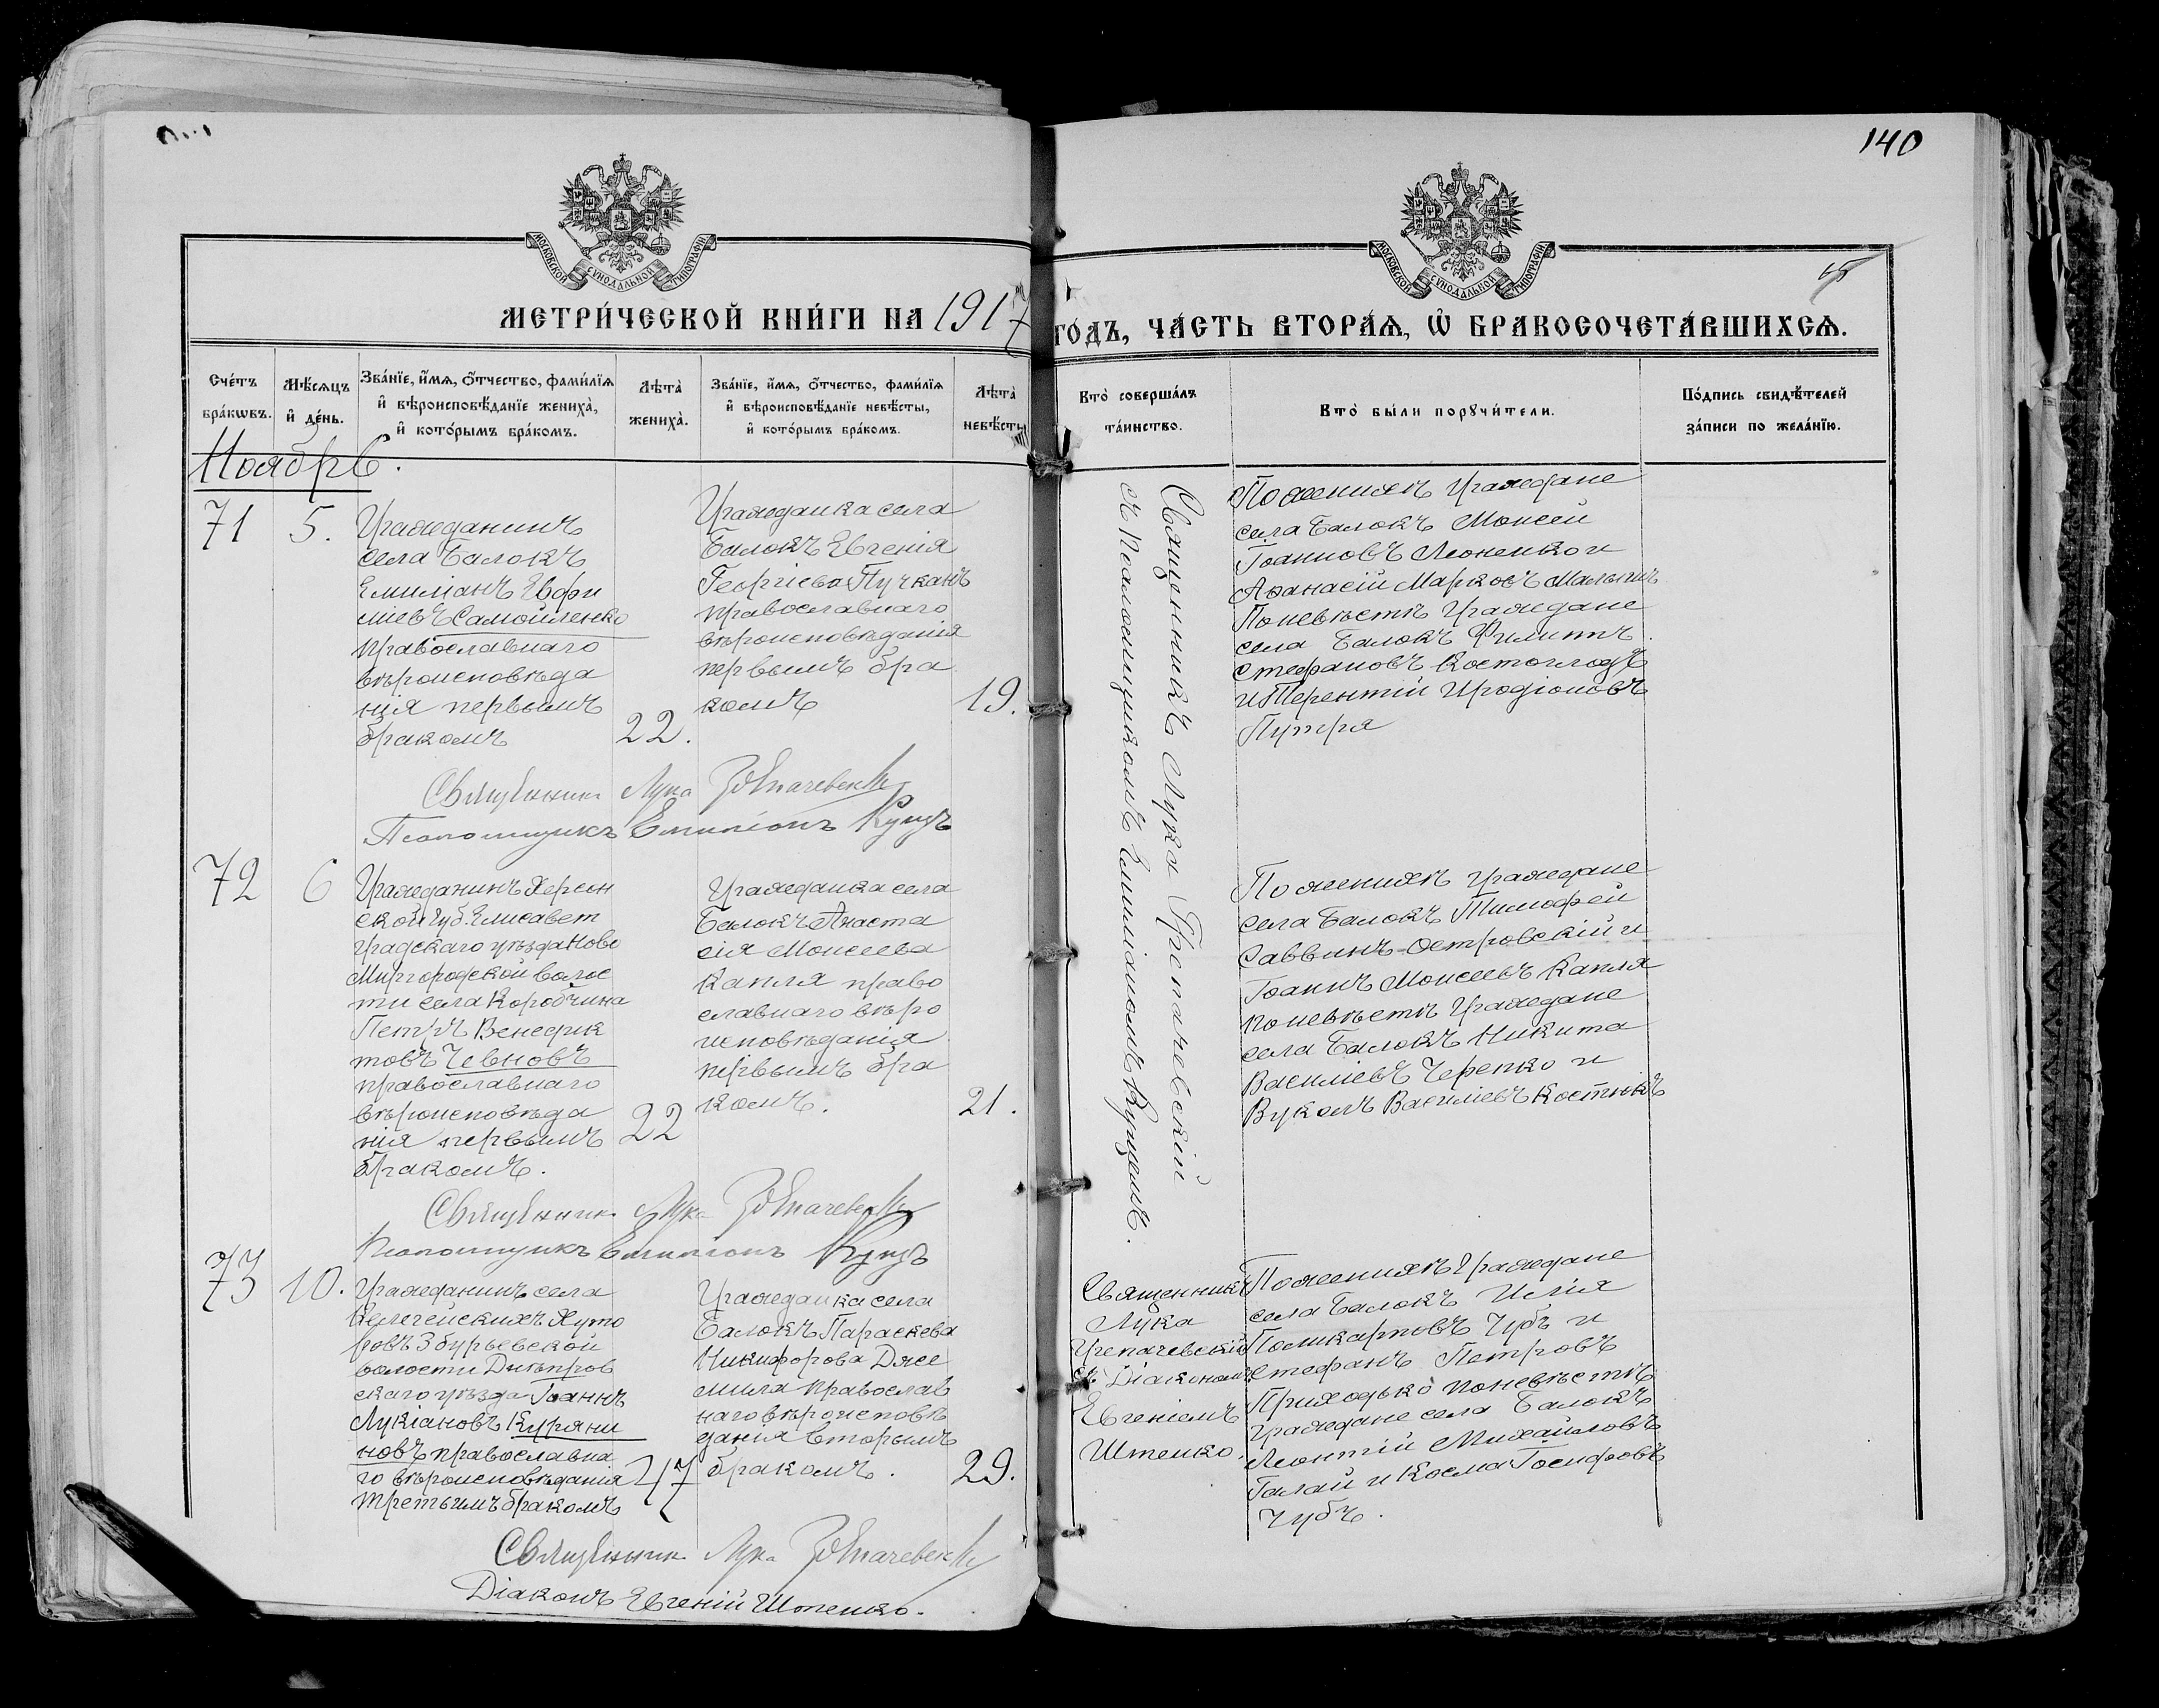 140
МОСКОВСКОЙ СѴНОДАЛЬНОЙ ТИПОГРАФІИ
МОСКОВСКОЙ СѴНОДАЛЬНОЙ ТИПОГРАФІИ
МЕТРИ́ЧЕСКОЙ КНИ́ГИ НА 1917
ГО́ДЪ, ЧА́СТЬ ВТОРА́Ѧ, Ѡ҆ БРАКОСОЧЕТА́ВШИХСѦ.
Сче́тъ
бра́кѡвъ.
Мѣ́сѧцъ
и҆ де́нь.
Зва́нїе, и҆́мѧ, ѻ҆́тчество, фами́лїѧ
и҆ вѣроисповѣ́данїе жениха̀,
и҆ кото́рымъ бра́комъ.
Лѣ́та̀
жениха̀.
Зва́нїе, и҆́мѧ, ѻ҆́тчество, фами́лїѧ
и҆ вѣроисповѣ́данїе невѣ́сты,
и҆ кото́рымъ бра́комъ.
Лѣ́та̀
невѣ́сты
Кто̀ соверша́лъ
та́инство.
Кто̀ бы́ли порꙋчи́тели.
По́дпись свидѣ́телей
за́писи по жела́нїю.
Ноябрь.
71
5.
Гражданинъ
села Балокъ
Емиліанъ Евфи
міевъ Самойленко
православнаго
вѣроисповѣда
нія первымъ
бракомъ
22.
Гражданка села
Балокъ Евгенія
Георгіева Пучканъ
православнаго
вѣроисповѣданія
первымъ бра
комъ
19.
Священникъ Лука Грепачевскій
съ Псаломщикомъ Емиліаномъ Куцемъ.
По женихѣ граждане
села Балокъ Моисей
Іоанновъ Леоненко и
Аѳанасій Марковъ
По невѣстѣ граждане
села Балокъ Филиппъ
Стефановъ Костоглодъ
и Терентій Иродіоновъ
Путря
Священникъ Лука
Псаломщикъ Емиліанъ Куцъ
72
6
Гражданинъ Херсон
ской губ. Елисавет
градскаго уѣзда Ново
Миргородской волос
ти села Коробчина
Петръ Венедик
товъ Чевновъ
православнаго
вѣроисповѣда
нія первымъ
бракомъ.
22
Гражданка села
Балокъ Анаста
сія Моисеева
Капля право
славнаго вѣро
исповѣданія
первымъ бра
комъ.
21.
По женихѣ граждане
села Балокъ Тимофей
Саввинъ Островскій и
Іоаннъ Моисеевъ Капля
по невѣстѣ граждане
села Балокъ Никита
Василіевъ Черепко и
Вуколъ Василіевъ Костюкъ
Священникъ Лука
Псаломщикъ Емиліанъ Куцъ
73
10.
Гражданинъ села
Келегейскихъ Хуто
ровъ Збурьевской
волости Днѣпров
скаго уѣзда Іоаннъ
Лукіановъ Куряни
новъ православна
го вѣроисповѣданія
третьимъ бракомъ
47
Гражданка села
Балокъ Параскева
Никифорова Дже
мила православ
наго вѣроисповѣ
данія вторымъ
бракомъ.
29.
Священникъ
Лука
Грепачевскій
съ Діакономъ
Евгеніемъ
Штенко.
По женихѣ граждане
села Балокъ Илія
Поликарповъ Чубъ и
Стефанъ Петровъ
Приходько по невѣстѣ
граждане села Балокъ
Леонтій Михайловъ
Галай и Косма Іосифовъ
Чубъ.
Священникъ Лука
Діаконъ Евгеній Штенко.